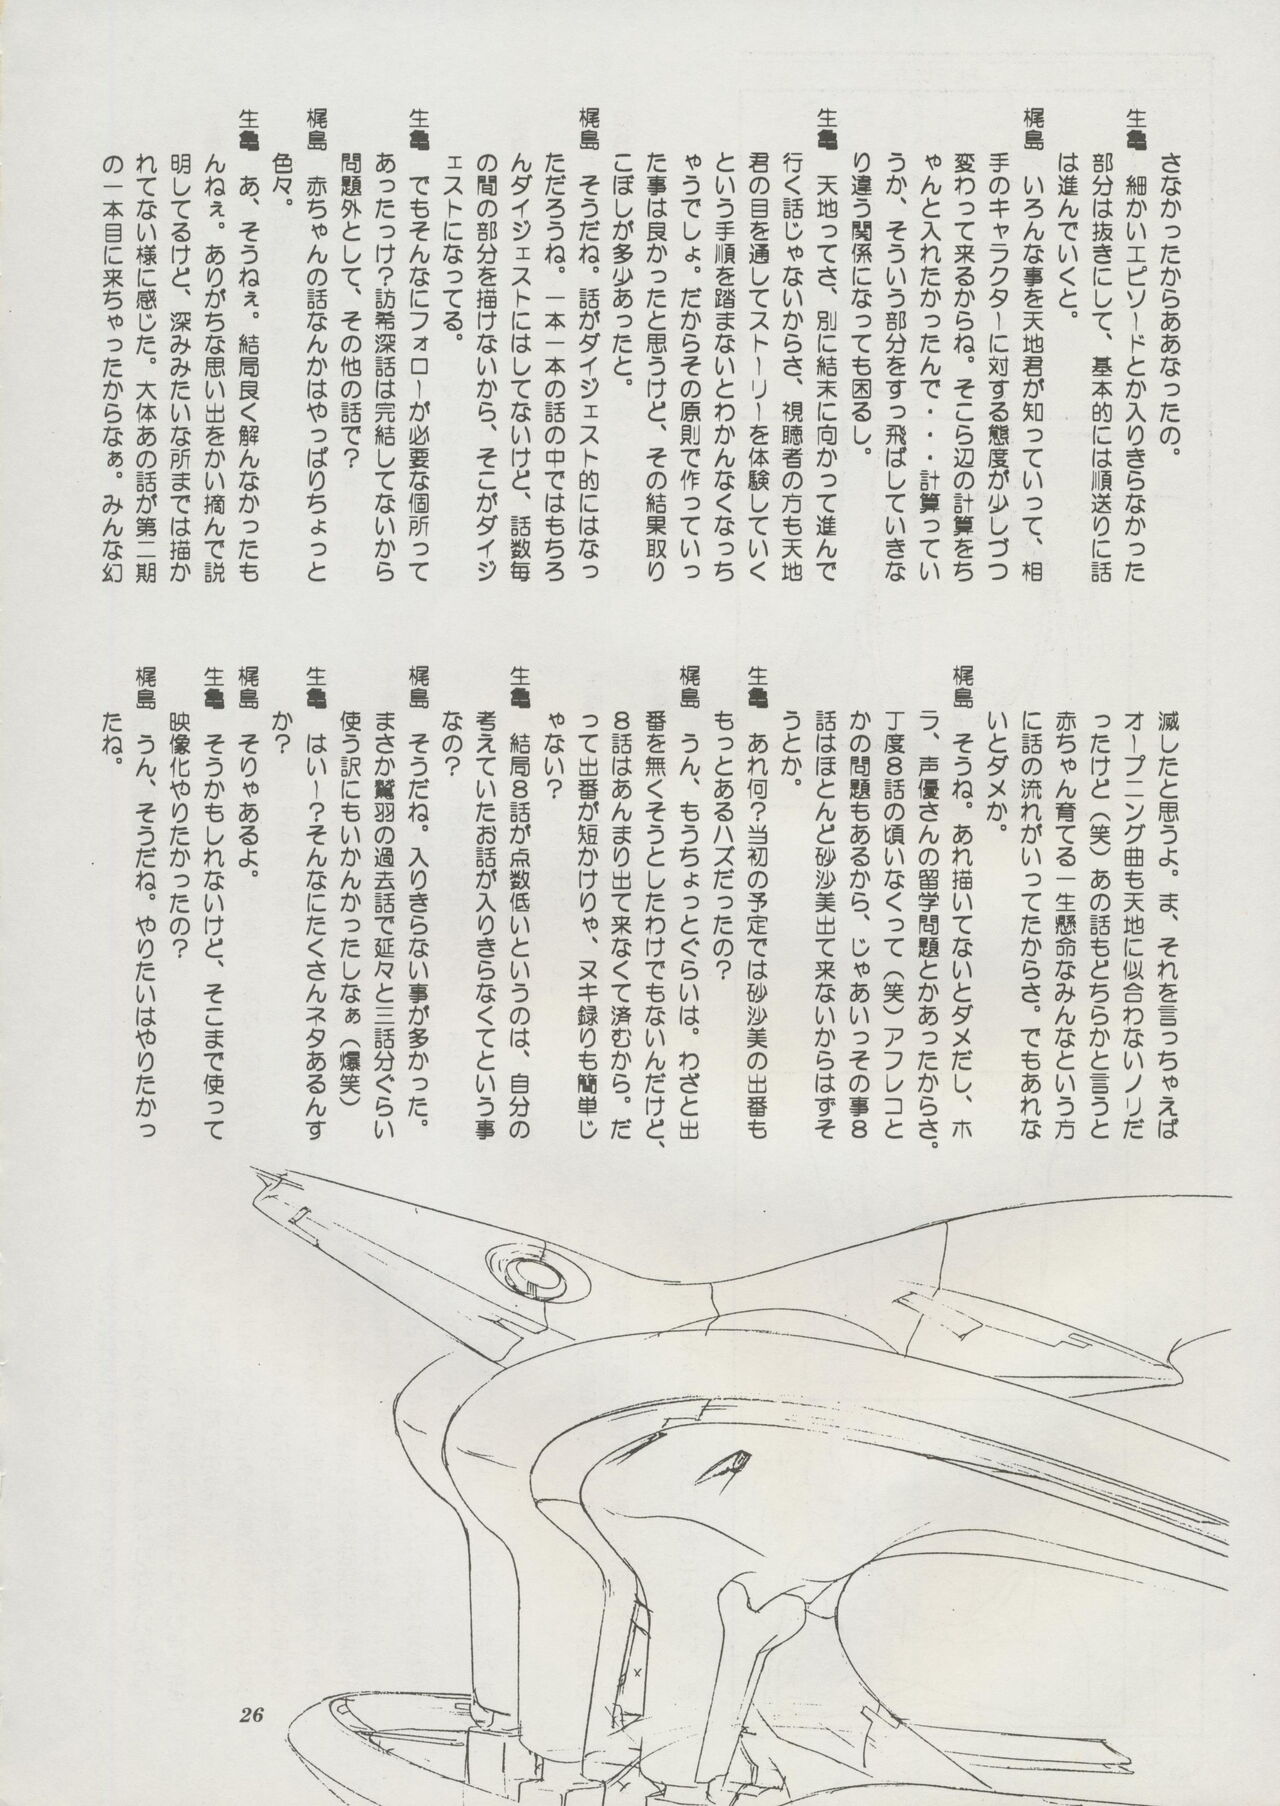 さなかったからああなったの。
生亀　細かいエピソードとか入りきらなかった
部分は抜きにして、基本的には順送りに話
は進んでいくと。
梶島　いろんな事を天地君が知っていって、相
手のキャラクターに対する態度が少しづつ
変わって来るからね。そこら辺の計算をち
ゃんと入れたかったんで・・・計算ってい
うか、そういう部分をすっ飛ばしていきな
り違う関係になっても困るし。
生亀　天地ってさ、別に結末に向かって進んで
行く話じゃないからさ、視聴者の方も天地
君の目を通してストーリーを体験していく
という手順を踏まないとわかんなくなっち
ゃうでしょ。だからその原則で作っていっ
た事は良かったと思うけど、その結果取り
こぼしが多少あったと。
梶島　そうだね。話がダイジェスト的にはなっ
ただろうね。一本一本の話の中ではもちろ
んダイジェストにはしてないけど、話数毎
の間の部分を描けないから、そこがダイジ
ェストになってる。
生亀　でもそんなにフォローが必要な個所って
あったっけ？訪希深話は完結してないから
問題外として、その他の話で？
梶島　赤ちゃんの話なんかはやっぱりちょっと
色々。
生亀　あ、そうねぇ。結局良く解んなかったも
んねぇ。ありがちな思い出をかい摘んで説
明してるけど、深みみたいな所までは描か
れてない様に感じた。大体あの話が第二期
の一本目に来ちゃったからなぁ。みんな幻
滅したと思うよ。ま、それを言っちゃえば
オープニング曲も天地に似合わないノリだ
ったけど（笑）あの話もどちらかと言うと
赤ちゃん育てる一生懸命なみんなという方
に話の流れがいってたからさ。でもあれな
いとダメか。
梶島　そうね。あれ描いてないとダメだし、ホ
ラ、声優さんの留学問題とかあったからさ。
丁度８話の頃いなくって（笑）アフレコと
かの問題もあるから、じゃあいっその事８
話はほとんど砂沙美出て来ないからはずそ
うとか。
生亀　あれ何？当初の予定では砂沙美の出番も
もっとあるハズだったの？
梶島　うん、もうちょっとぐらいは。わざと出
番を無くそうとしたわけでもないんだけど、
８話はあんまり出て来なくて済むから。だ
って出番が短かけりゃ、ヌキ録りも簡単じ
ゃない？
生亀　結局８話が点数低いというのは、自分の
考えていたお話が入りきらなくてという事
なの？
梶島　そうだね。入りきらない事が多かった。
まさか鷲羽の過去話で延々と三話分ぐらい
使う訳にもいかんかったしなぁ（爆笑）
生亀　はい〜？そんなにたくさんネタあるんす
か？
梶島　そりゃあるよ。
生亀　そうかもしれないけど、そこまで使って
映像化やりたかったの？
梶島　うん、そうだね。やりたいはやりたかっ
たね。
26